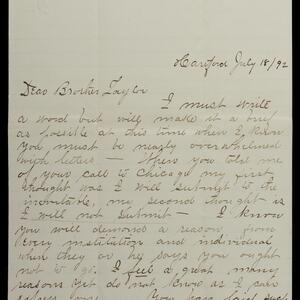 Hartford July 18/92
Dear Brother Taylor
I must write
a word but will make it as brief
as possible at this time when I know
you must be nearly overwhelmed
with letters — When you told me
of your call to Chicago my first
thought was I will submit to the
inevitable, my second thought is
I will not submit — I know
you will demand a reason from
every institution and individual
when they or he says you ought
not to go. I feel a great many
reasons yet do not know as I can
You have